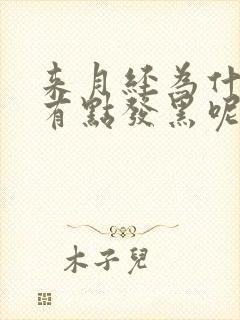 来月經為什
有點發黑呢
木子兒